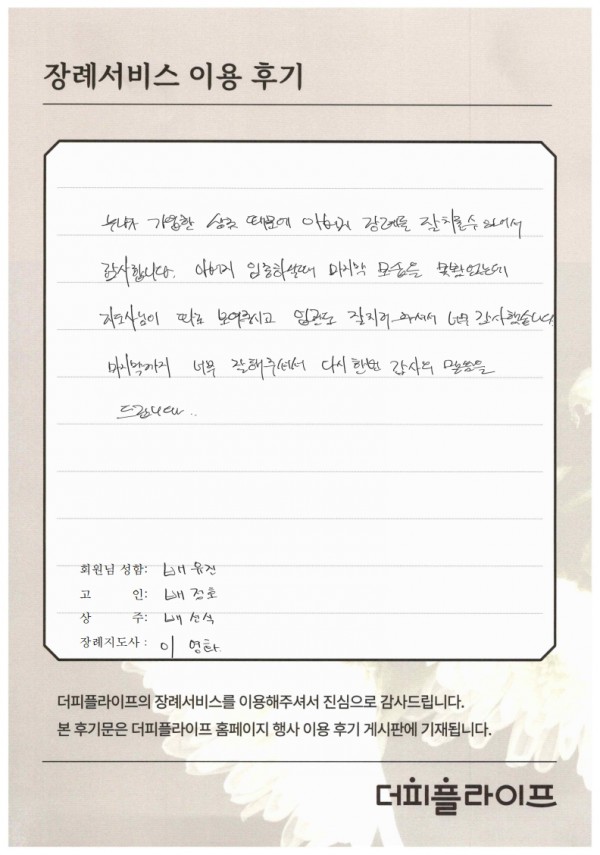 장례서비스 이용 후기
가입한 상조 때문에 아버지 장례를 잘 치룰수 있어서
감사합니다. 아버지 임종하실때 마지막 모습을 못봤었는데
지도사님이 따로 보여주시고 입관도 잘치러 주셔서 너무 감사했습니다.
마지막까지 너무 잘해주셔서 다시한번 감사의 말씀을
드립니다..
회원님 성함: 배유진
고 인: 배정호
상 주: 배선식
장례지도사: 이영화
더피플라이프의 장례서비스를 이용해주셔서 진심으로 감사드립니다.
본 후기문은 더피플라이프 홈페이지 행사 이용 후기 게시판에 기재됩니다.
더피플라이프